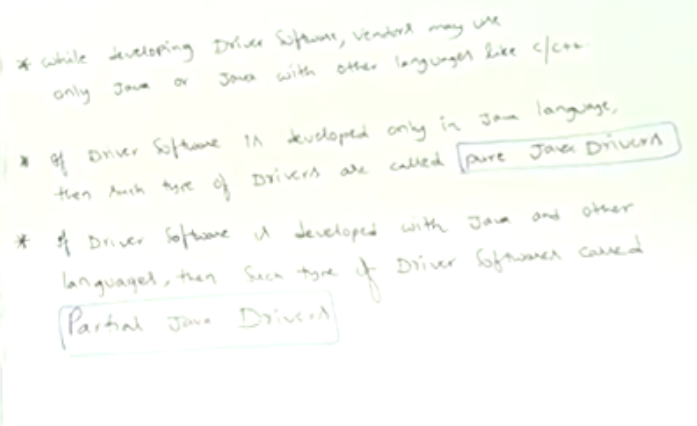 * while developing Driver Software, vendors may use
only Java or Java with other languages like C/C++.
* If Driver Software is developed only in Java language,
then such type of Drivers are called pure Java Drivers
* If Driver Software is developed with Java and other
languages, then such type of Driver Softwares called
Partial Java Drivers